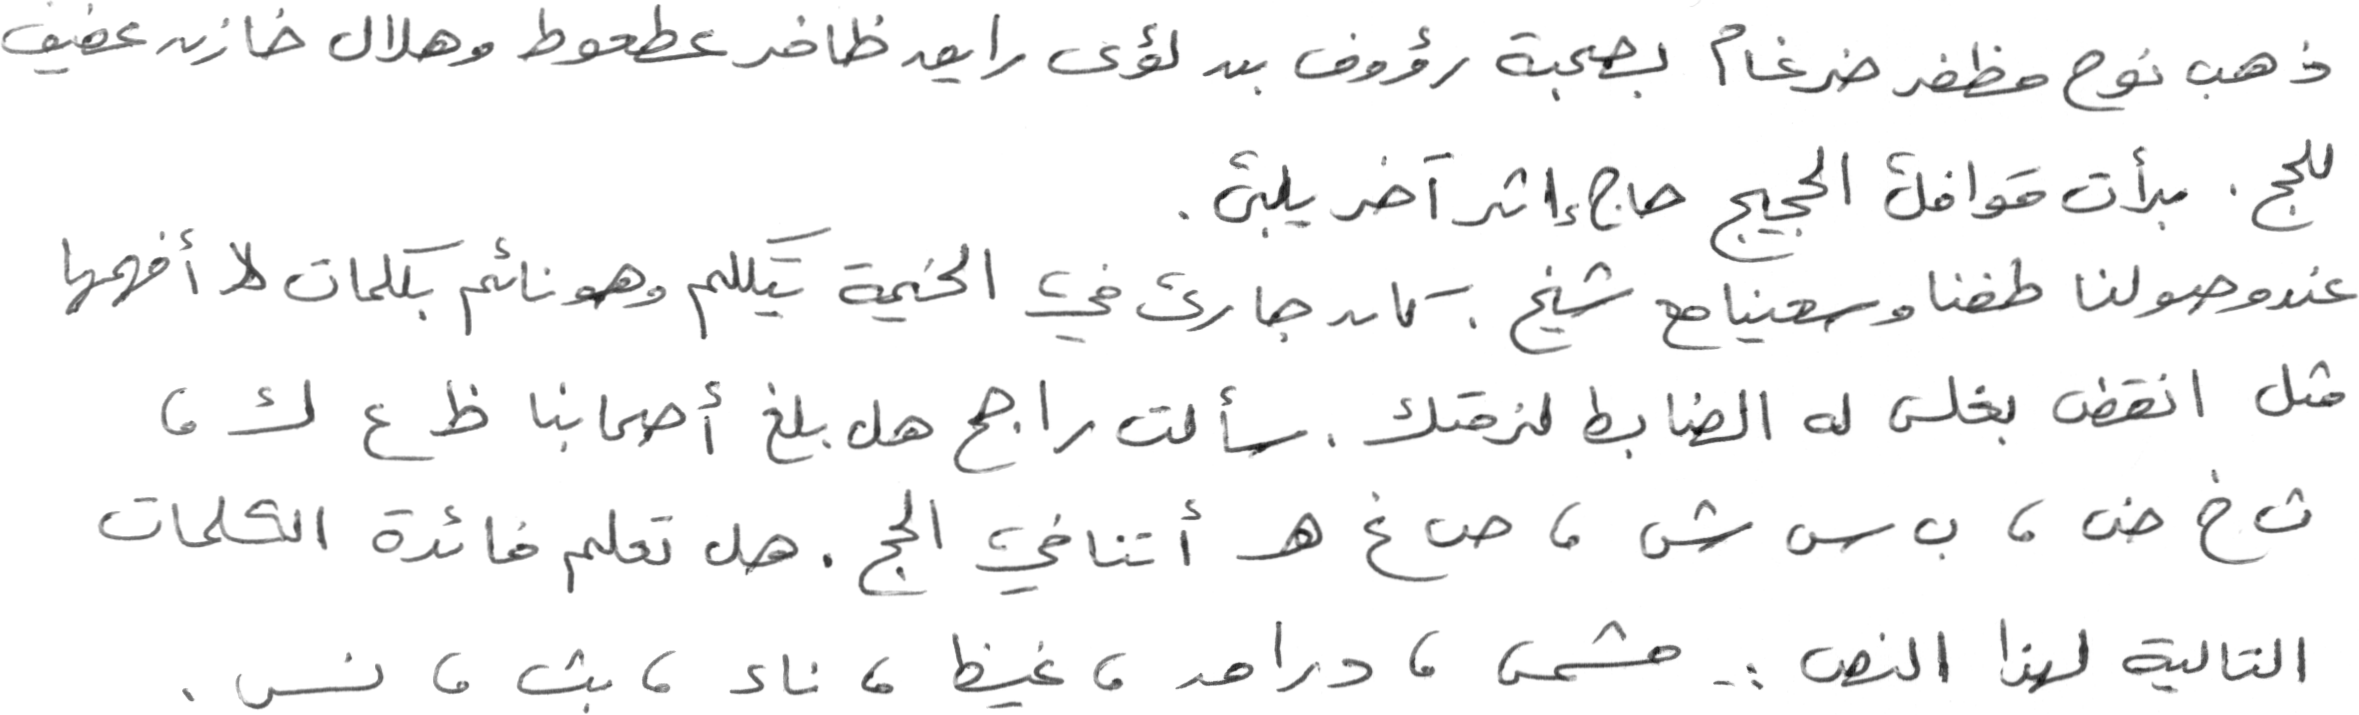 ذهب نوح مظفر ضرغام بصحبة رؤوف بن لؤى رايق ظافر عطعوط وهلال خازن عفيف
للحج . بدأت قوافل الحجيج حاج إثر آخر يلبى .
عند وصولنا طفنا وسعينا مع شيخ . كان جارى في الخيمة يتكلم وهو نائم بكلمات لا أفهمها
مثل انقض بغلس له الضابط لزقتك . سألت راجح هل بلغ أصحابنا ظ ع ك ،
ث خ ض ، ب س ش ، ص غ هـ أتنا في الحج . هل تعلم فائدة الكلمات
التالية لهذا النص :- مشمس ، دراهم ، غيظ ، ناء ، بث ، نسس .